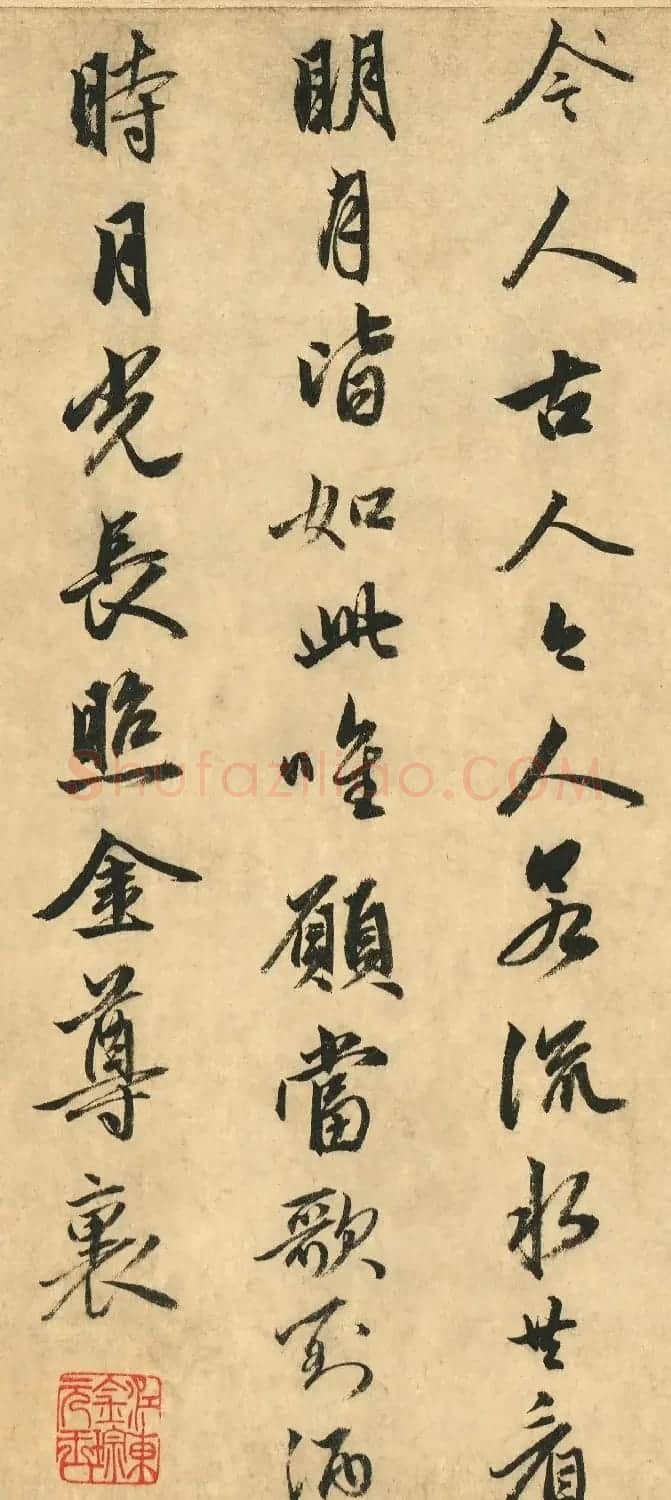 今人古人今人若流水共看
明月皆如此唯願當歌對酒
時月光長照金尊裏
江東金琮元玉
Shufaziliao.COM